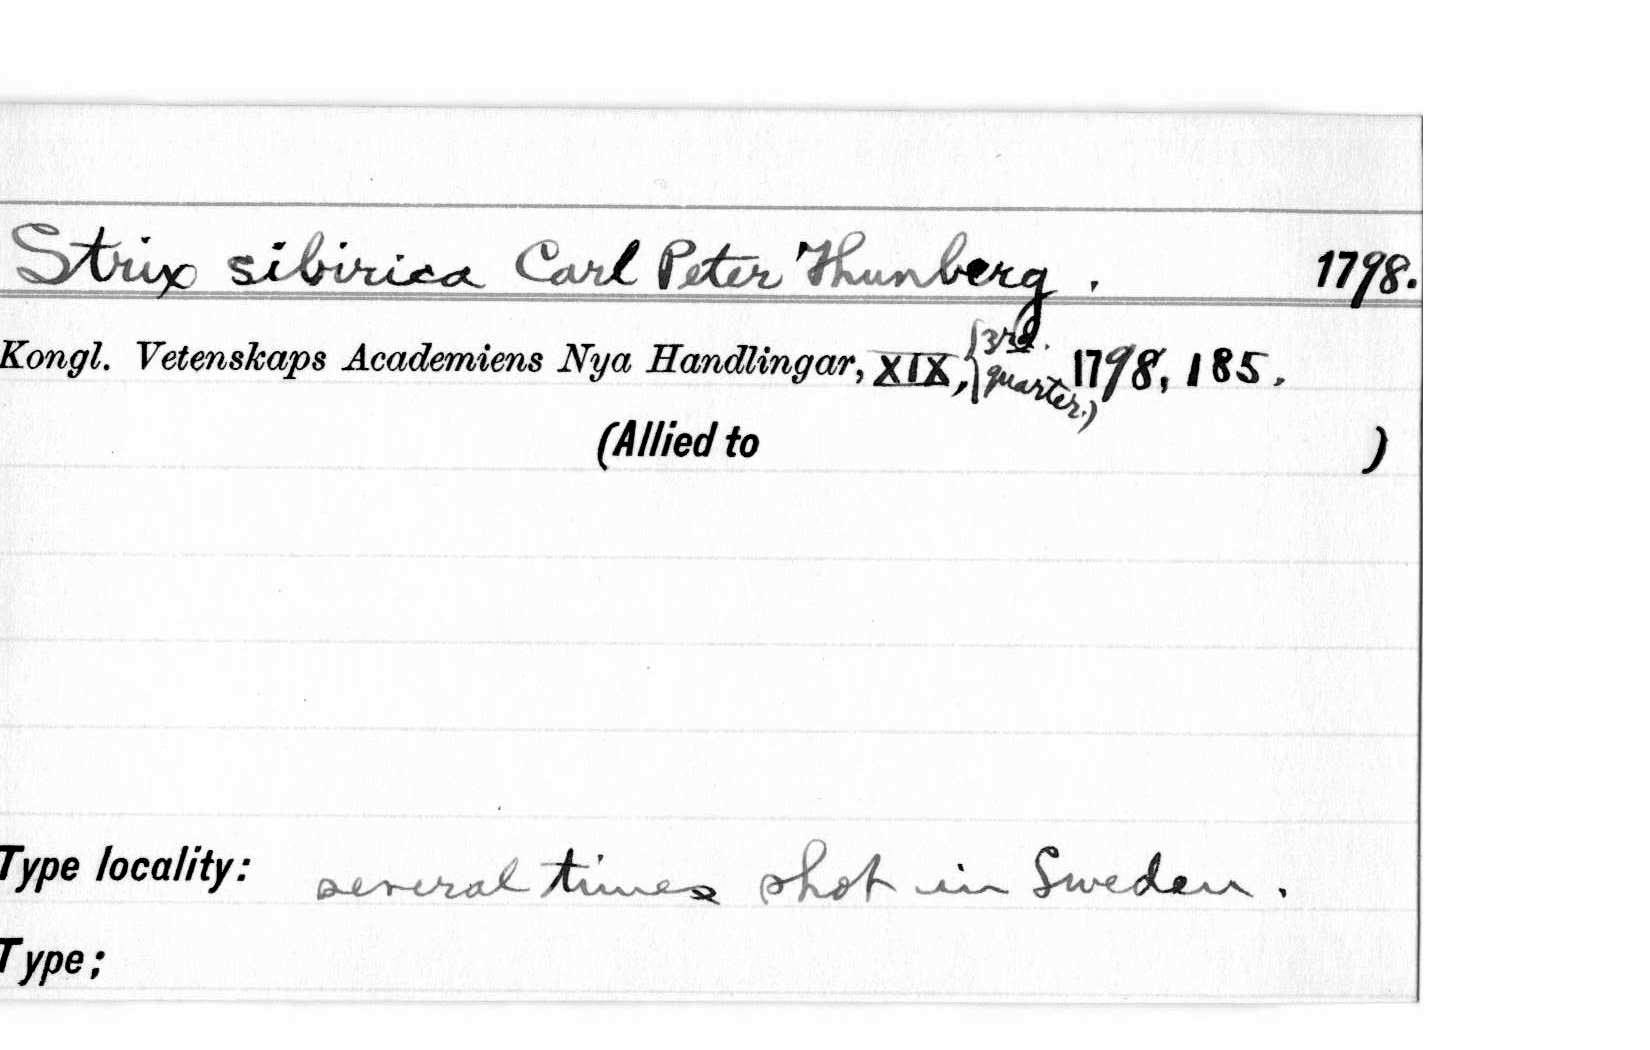 Strix sibirica Carl Peter Thunberg . 1798.
Kongl. Vetenskaps Academiens Nya Handlingar, XIX, (3rd. quarter.) 1798, 185.
(Allied to )
Type locality: several times shot in Sweden .
Type;